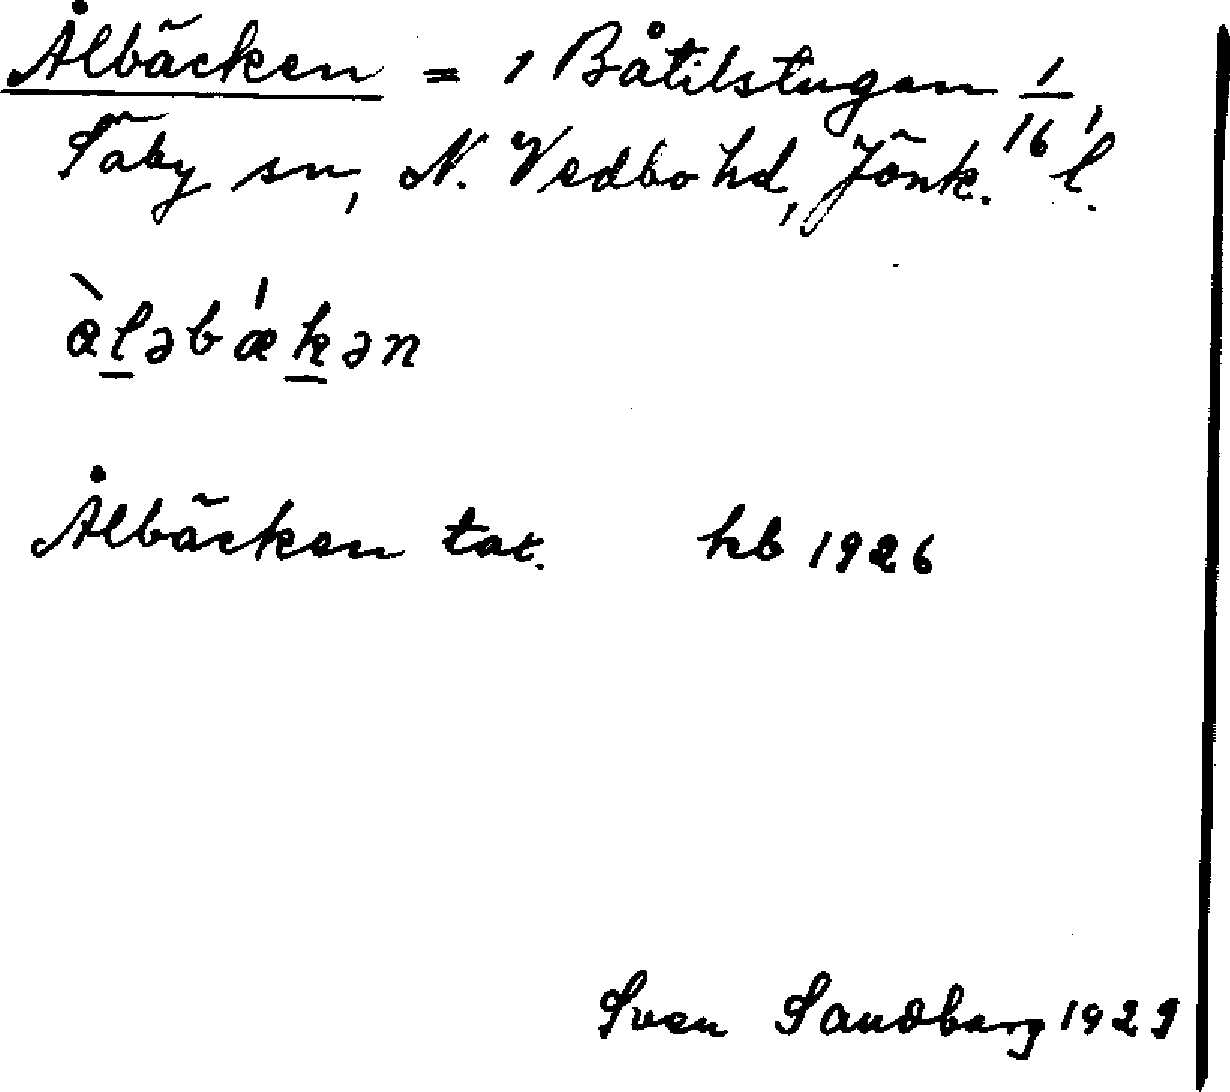 Ålbäcken = 1 Båtilstugan 1/16,
Säby sn, N. Vedbo hd, Jönk. l.
àləbǽkən
Ålbäcken tat. hb 1926
Sven Sandberg 1929